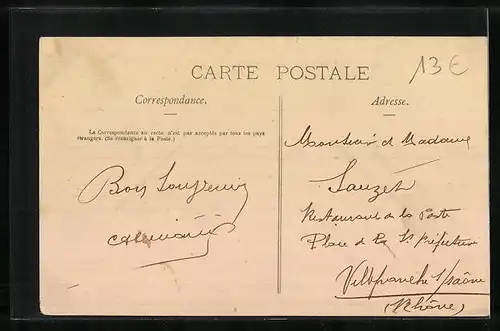 CARTE POSTALE
13€
Correspondance.
Adresse.
La Correspondance au recto n'est pas acceptée par tous les pays
étrangers. (Se renseigner à la Poste.)
Bon Souvenir
Monsieur et Madame
Sauzet
Restaurant de la Poste
Place de la S. Préfecture
Villefranche s/saône
(Rhône)